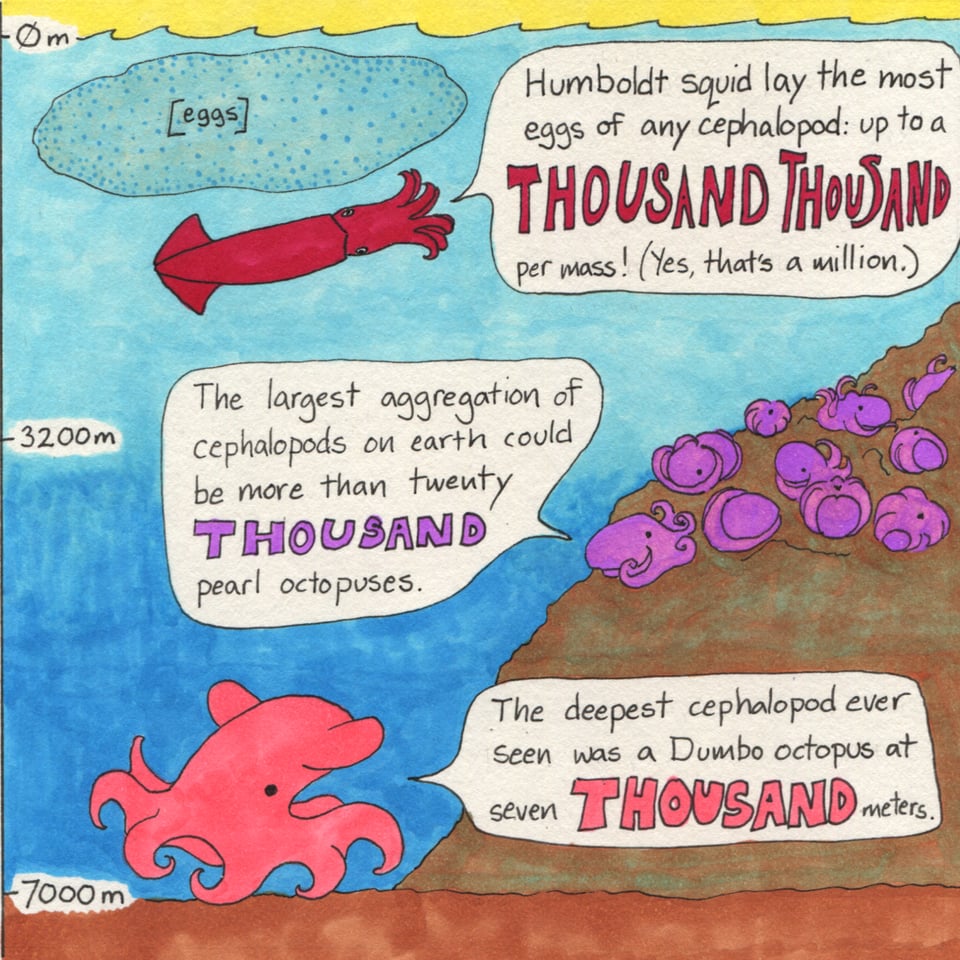 Øm
[eggs]
Humboldt squid lay the most
eggs of any cephalopod: up to a
THOUSAND THOUSAND
per mass! (Yes, that's a million.)
3200m
The largest aggregation of
cephalopods on earth could
be more than twenty
THOUSAND
pearl octopuses.
The deepest cephalopod ever
seen was a Dumbo octopus at
seven THOUSAND meters.
7000m